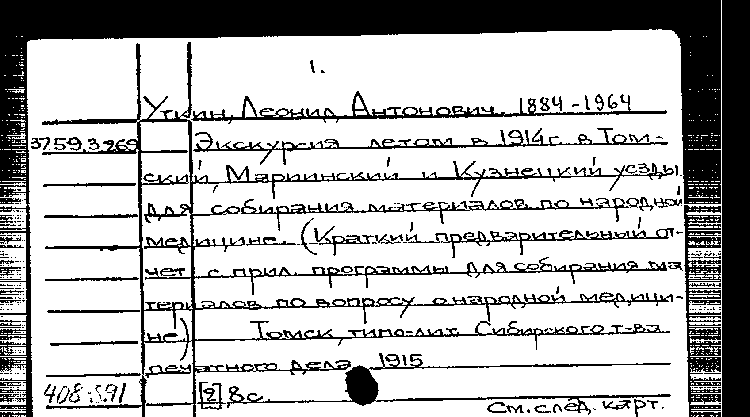 1.
Уткин, Леонид Антонович. 1884-1964
3759.3269 Экскурсия летом в 1914г. в Том-
ский, Мариинский и Кузнецкий уезды
для собирания материалов по народной
медицине. (Краткий предварительный от-
чет с прил. программы для собирания ма-
териалов по вопросу о народной медици-
не) Томск, типо-лит. Сибирского т-ва
печатного дела, 1915
[2], 8 с.
См. след. карт.